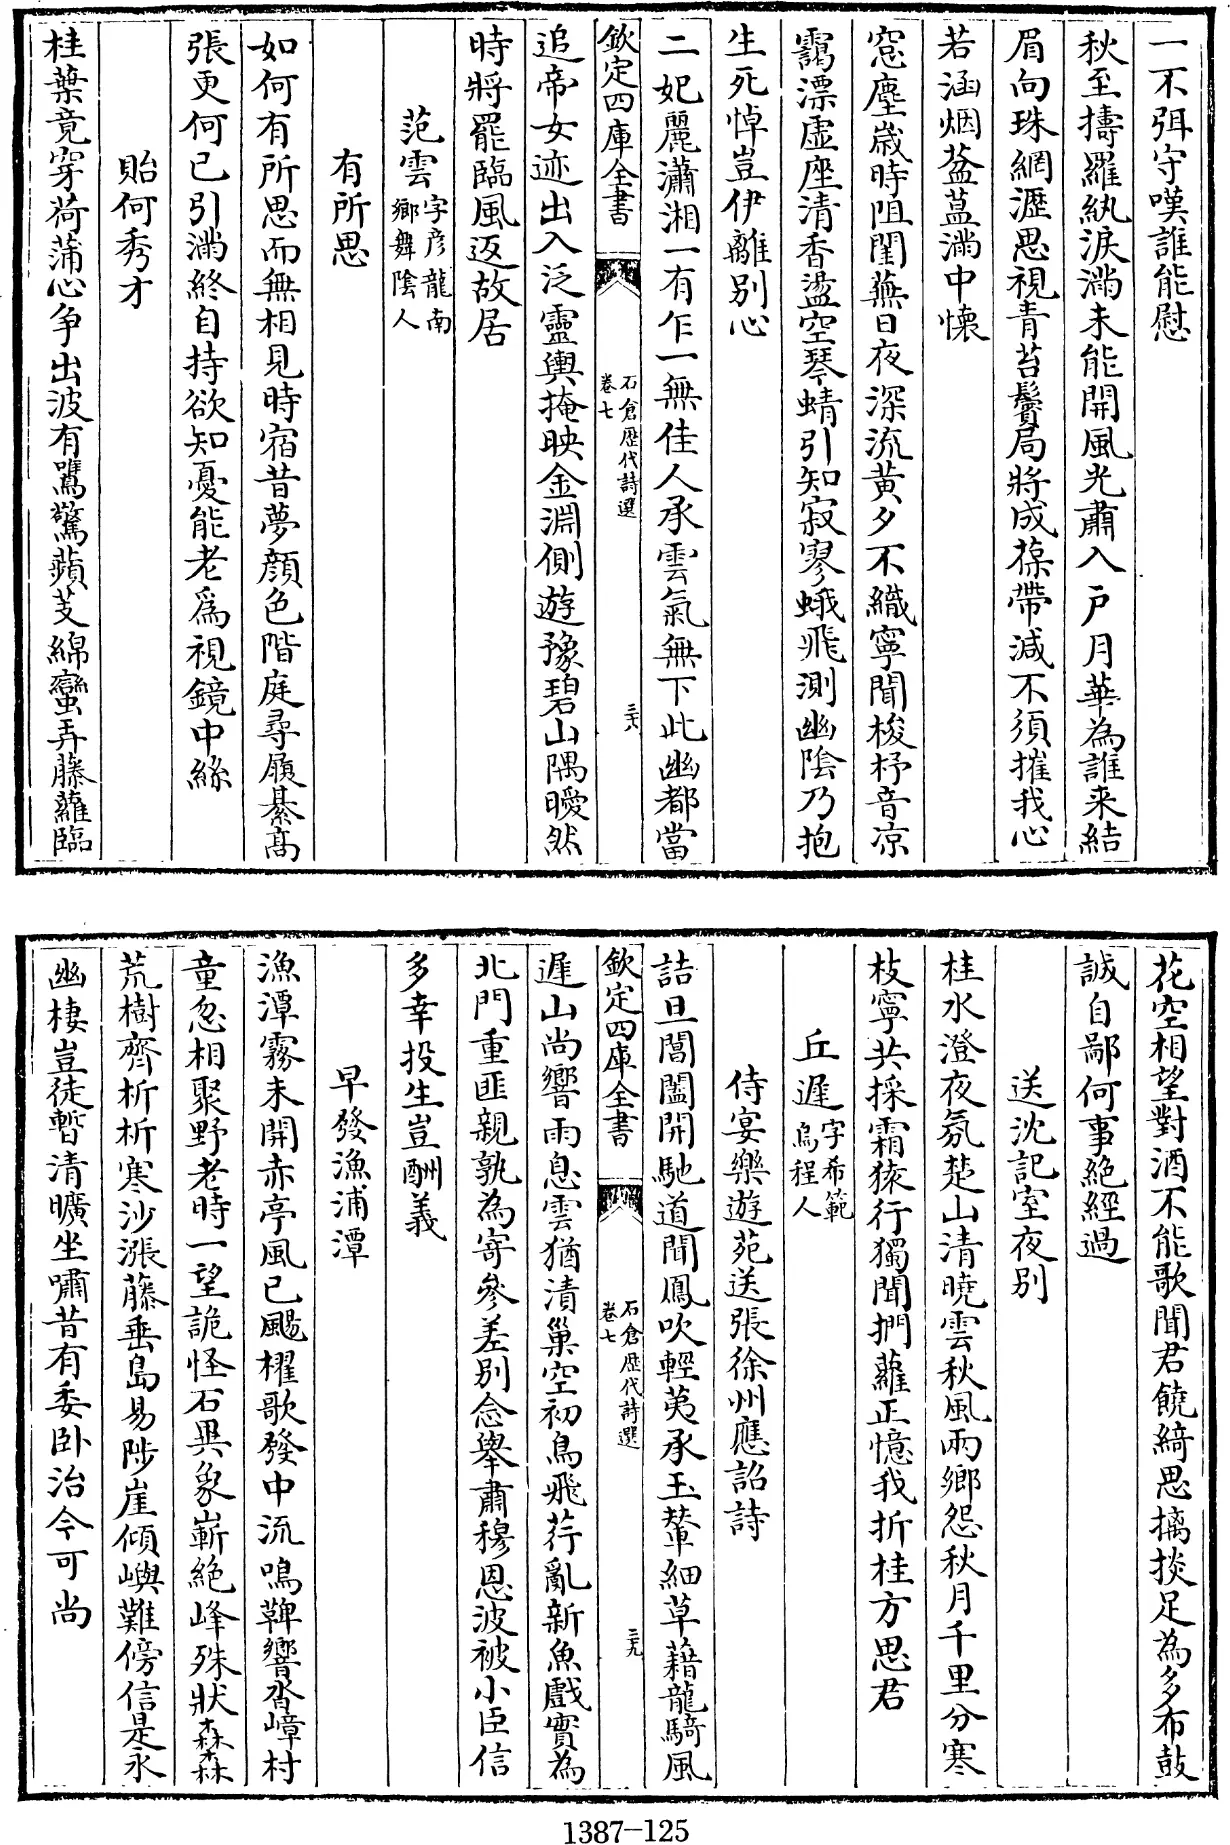 一不弭守嘆誰能慰
秋至擣羅紈淚滿未能開風光肅入戸月華為誰来結
眉向珠網瀝思視青苔鬢局將成葆帶減不須摧我心
若涵烟葢蒀滿中懷
窓塵嵗時阻閨蕪日夜深流黄夕不織寧聞梭杼音凉
靄漂虚座清香盪空琴蜻引知寂寥蛾飛測幽陰乃抱
生死悼豈伊離别心
二妃麗瀟湘一有乍一無佳人承雲氣無下此幽都當
欽定四庫全書
石倉歴代詩選
卷七
三六
追帝女迹出入泛靈輿掩映金淵側遊豫碧山隅曖然
時將罷臨風返故居
范雲字彦龍南鄉舞陰人
有所思
如何有所思而無相見時宿昔夢顔色階庭尋履綦髙
張更何已引滿終自持欲知憂能老爲視鏡中絲
貽何秀才
桂葉竟穿荷蒲心争出波有鷕驚蘋芰綿蠻弄藤蘿臨
花空相望對酒不能歌聞君饒綺思摛掞足為多布鼓
誠自鄙何事絶經過
送沈記室夜别
桂水澄夜氛楚山清曉雲秋風兩鄉怨秋月千里分寒
枝寧共採霜猿行獨聞捫蘿正憶我折桂方思君
丘遲字希範烏程人
侍宴樂遊苑送張徐州應詔詩
詰旦閶闔開馳道聞鳳吹輕荑承玉輦細草藉龍騎風
欽定四庫全書
石倉歴代詩選
卷七
三九
遲山尚響雨息雲猶漬巢空初鳥飛荇亂新魚戲實為
北門重匪親孰為寄參差别念舉肅穆恩波被小臣信
多幸投生豈酬義
早發漁浦潭
漁潭霧未開赤亭風已颺櫂歌發中流鳴鞞響沓嶂村
童忽相聚野老時一望詭怪石異象嶄絶峰殊狀森森
荒樹齊析析寒沙漲藤垂島易陟崖傾嶼難傍信是永
幽棲豈徒暫清曠坐嘯昔有委卧治今可尚
1387—125